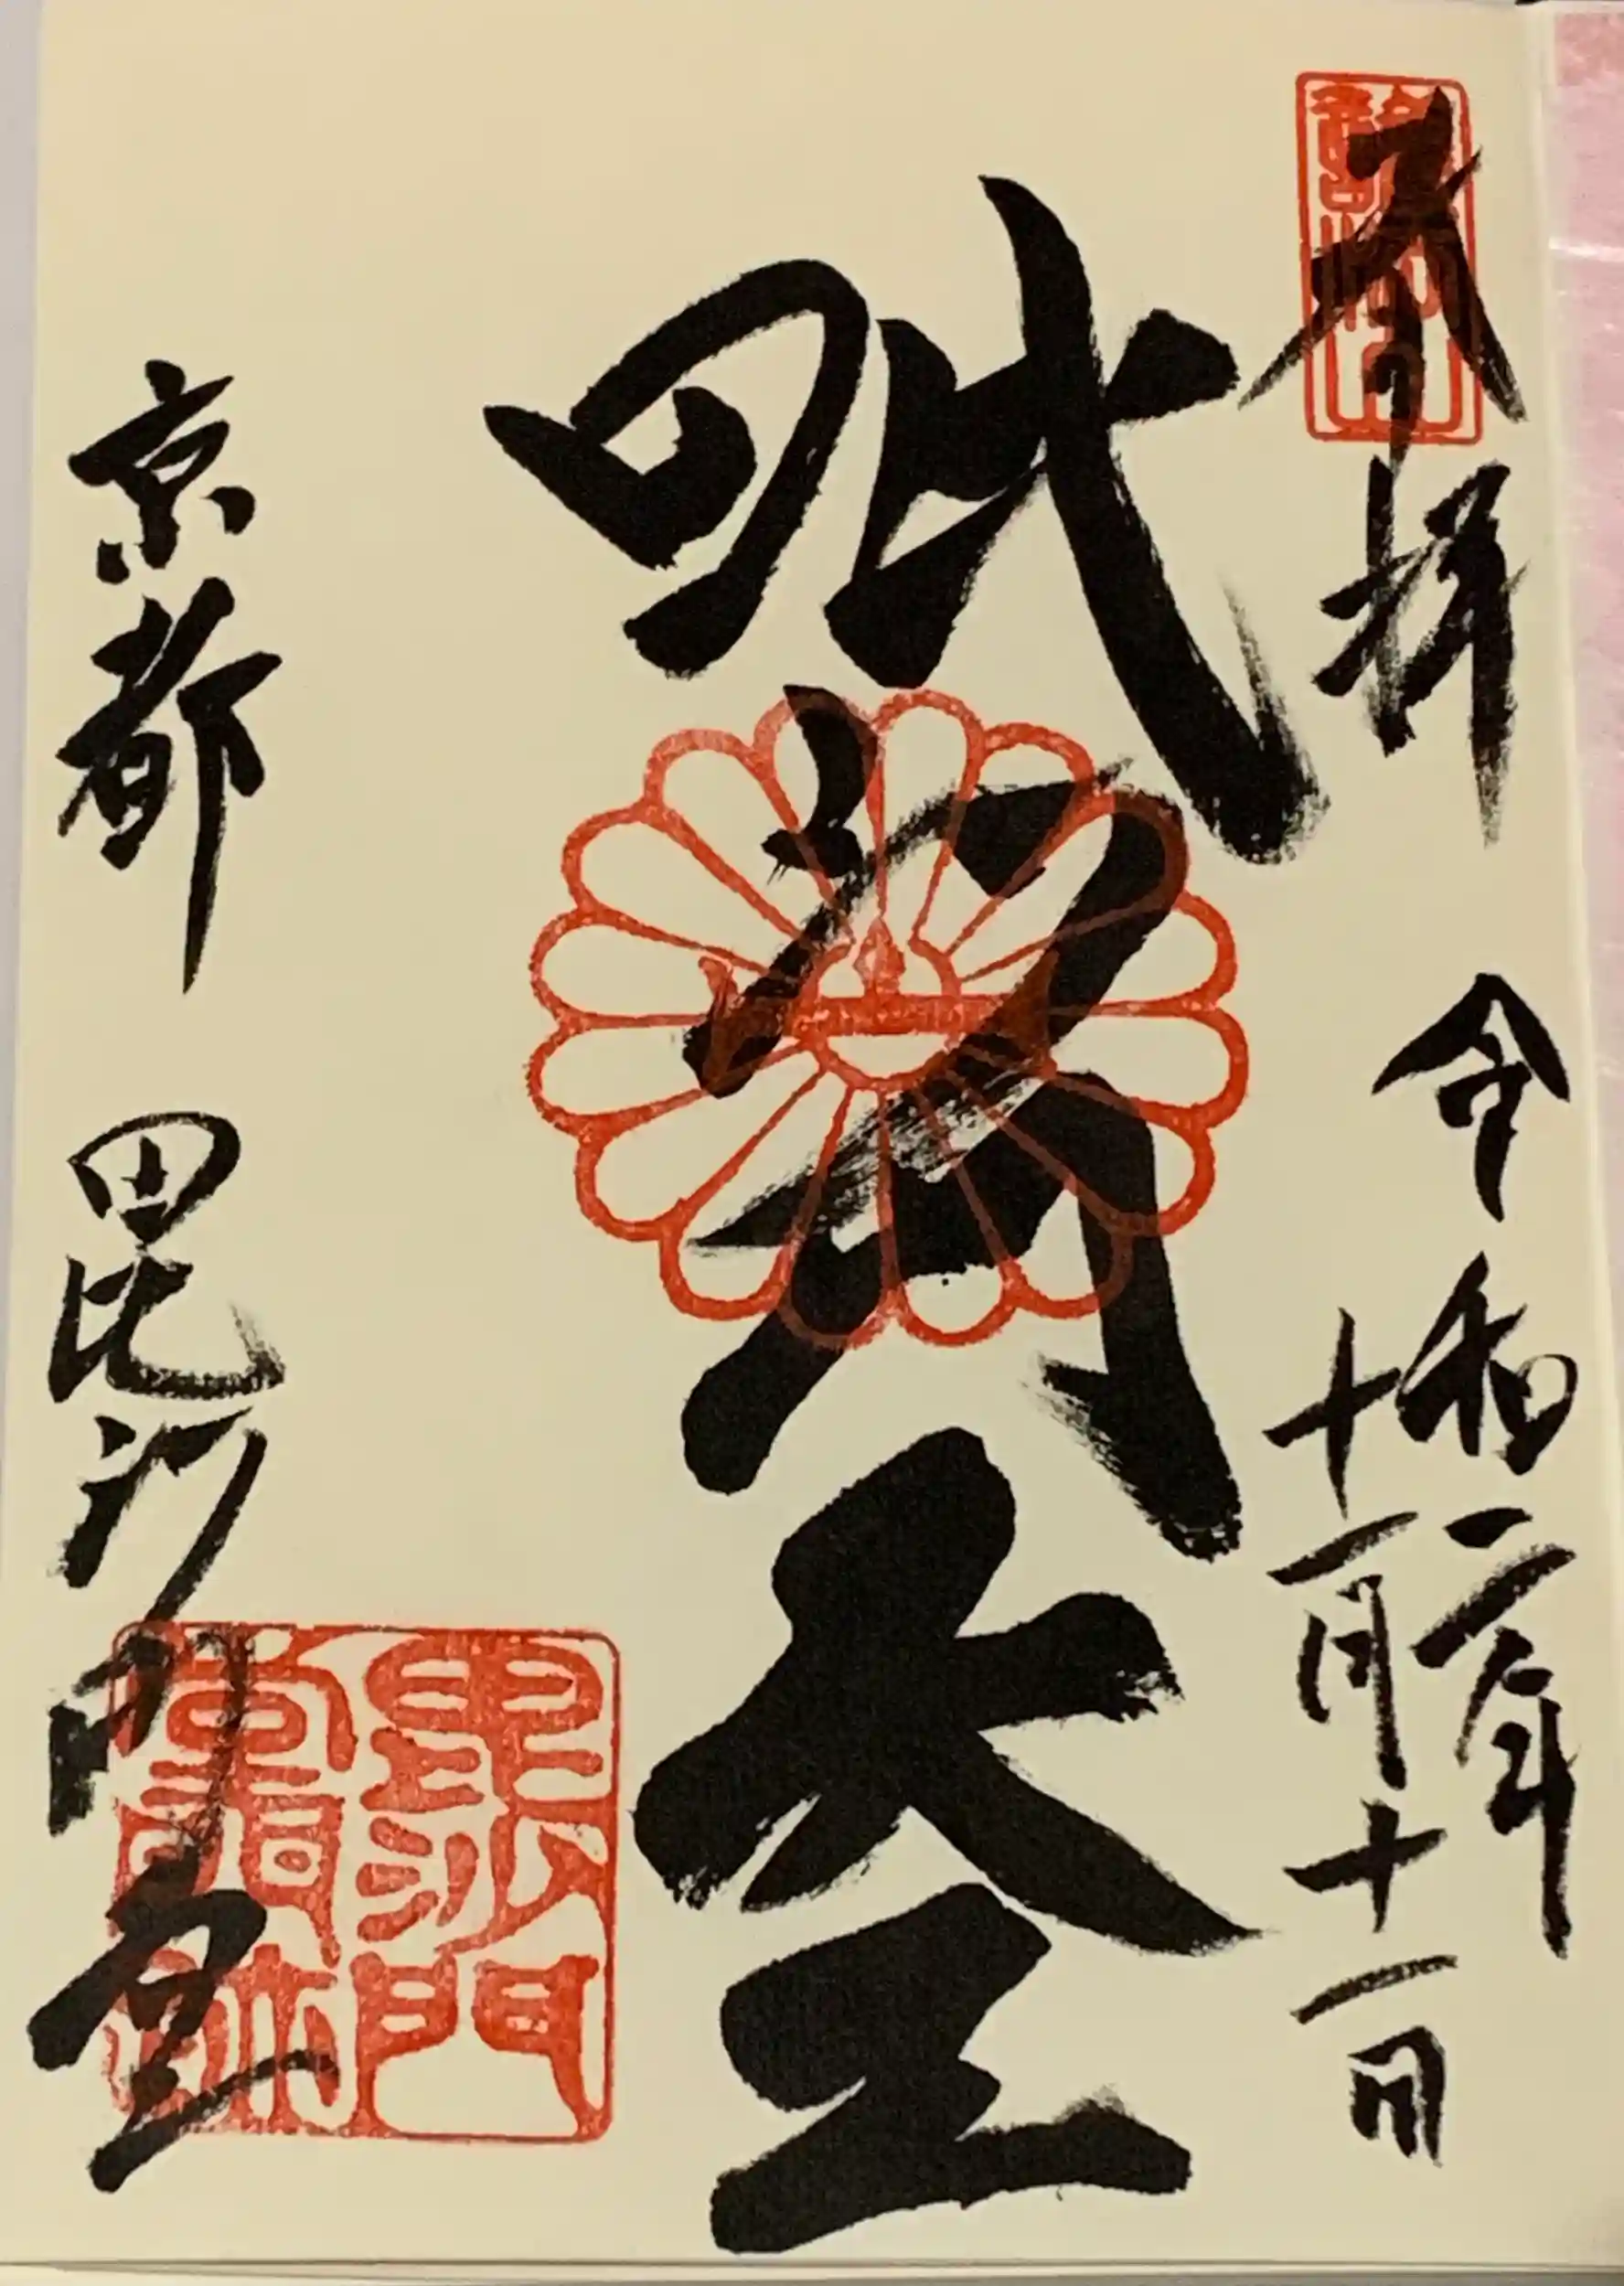 奉拝
令和二年
十一月十一日
毗沙門天王
京都 毘沙門堂
毘沙門
堂